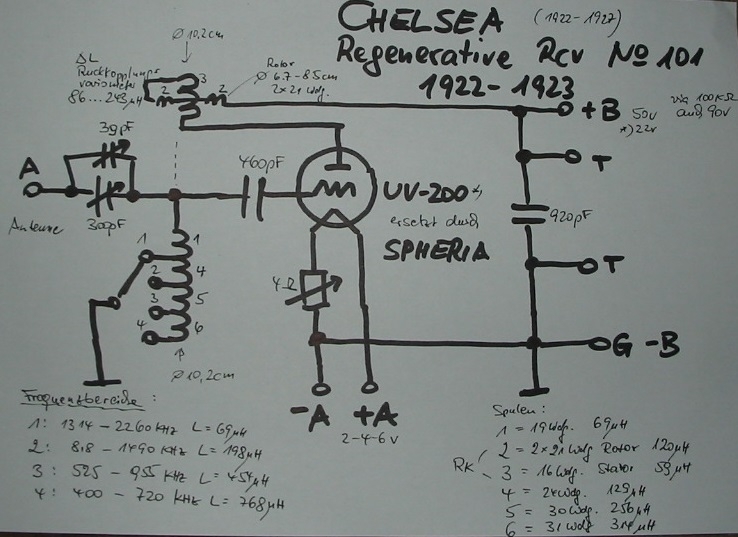 CHELSEA (1922-1927)
Regenerative Rcv No 101
1922-1923
Ø 10,2cm
ΔL
Rückkopplungs
variometer
86...243µH
3
2
2
Rotor
Ø 6.7-8.5cm
2x21 Wdg.
+B 50V via 100KΩ
auch 90V
*) 22V
39pF
T
A
Antenne
300pF
460pF
UV-200
ersetzt durch
SPHERIA
920pF
1
1
2
4
3
5
4
6
4Ω
T
Ø 10,2cm
G -B
-A +A
2-4-6V
Frequenzbereiche:
1: 1314-2260 KHz L= 69µH
2: 818-1490 KHz L= 198µH
3: 525-955 KHz L= 454µH
4: 400-720 KHz L= 768µH
Spulen:
1 = 19Wdg. 69µH
2 = 2x21 Wdg Rotor 120µH
RK
3 = 16Wdg. Stator 59µH
4 = 24Wdg. 129µH
5 = 30Wdg. 256µH
6 = 31Wdg 314µH